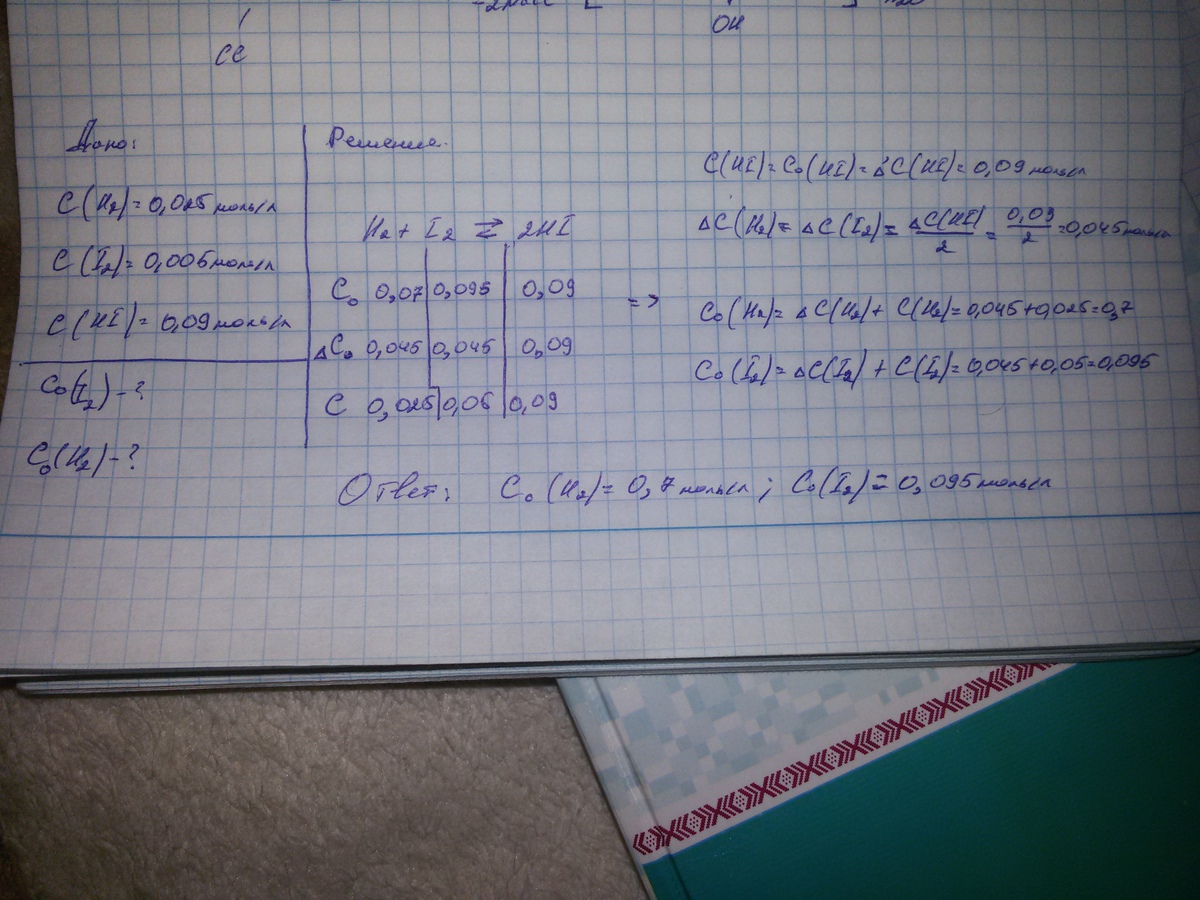 OH
CC
Дано:
C(H₂) = 0,025 моль/л
C(I₂) = 0,005 моль/л
C(HI) = 0,09 моль/л
C₀(I₂) - ?
C₀(H₂) - ?
Решение.
H₂ + I₂ ⇄ 2HI
C₀ 0,07 | 0,095 | 0,09
ΔC₀ 0,045 | 0,045 | 0,09
C 0,025 | 0,05 | 0,09
=>
C(HI) = C₀(HI) = ΔC(HI) = 0,09 моль/л
ΔC(H₂) = ΔC(I₂) = ΔC(HI)/2 = 0,09/2 = 0,045 моль/л
C₀(H₂) = ΔC(H₂) + C(H₂) = 0,045 + 0,025 = 0,7
C₀(I₂) = ΔC(I₂) + C(I₂) = 0,045 + 0,05 = 0,095
Ответ: C₀(H₂) = 0,7 моль/л; C₀(I₂) = 0,095 моль/л